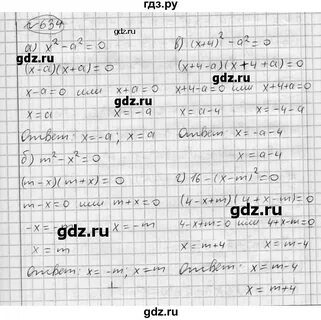 гдз.ру
№ 639
а) x² - a² = 0
(x-a)(x+a) = 0
x-a=0 или x+a=0
x=a x=-a
Ответ: x=-a; x=a
б) m² - x² = 0
(m-x)(m+x) = 0
m-x=0 или m+x=0
-x=-m x=-m
x=m
Ответ: x=-m; x=m
в) (x+4)² - a² = 0
(x+4-a)(x+4+a) = 0
x+4-a=0 x+4+a=0
x=a-4 x=-4-a
Ответ: x=-a-4
x=a-4
г) 16-(x-m)²=0
(4-x+m)(4+x-m)=0
4-x+m=0 или 4+x-m=0
x=m+4 x=m-4
Ответ: x=m-4
x=m+4
gdz.ru
gdz.ru
gdz.ru
gdz.ru
gdz.ru
gdz.ru
gdz.ru